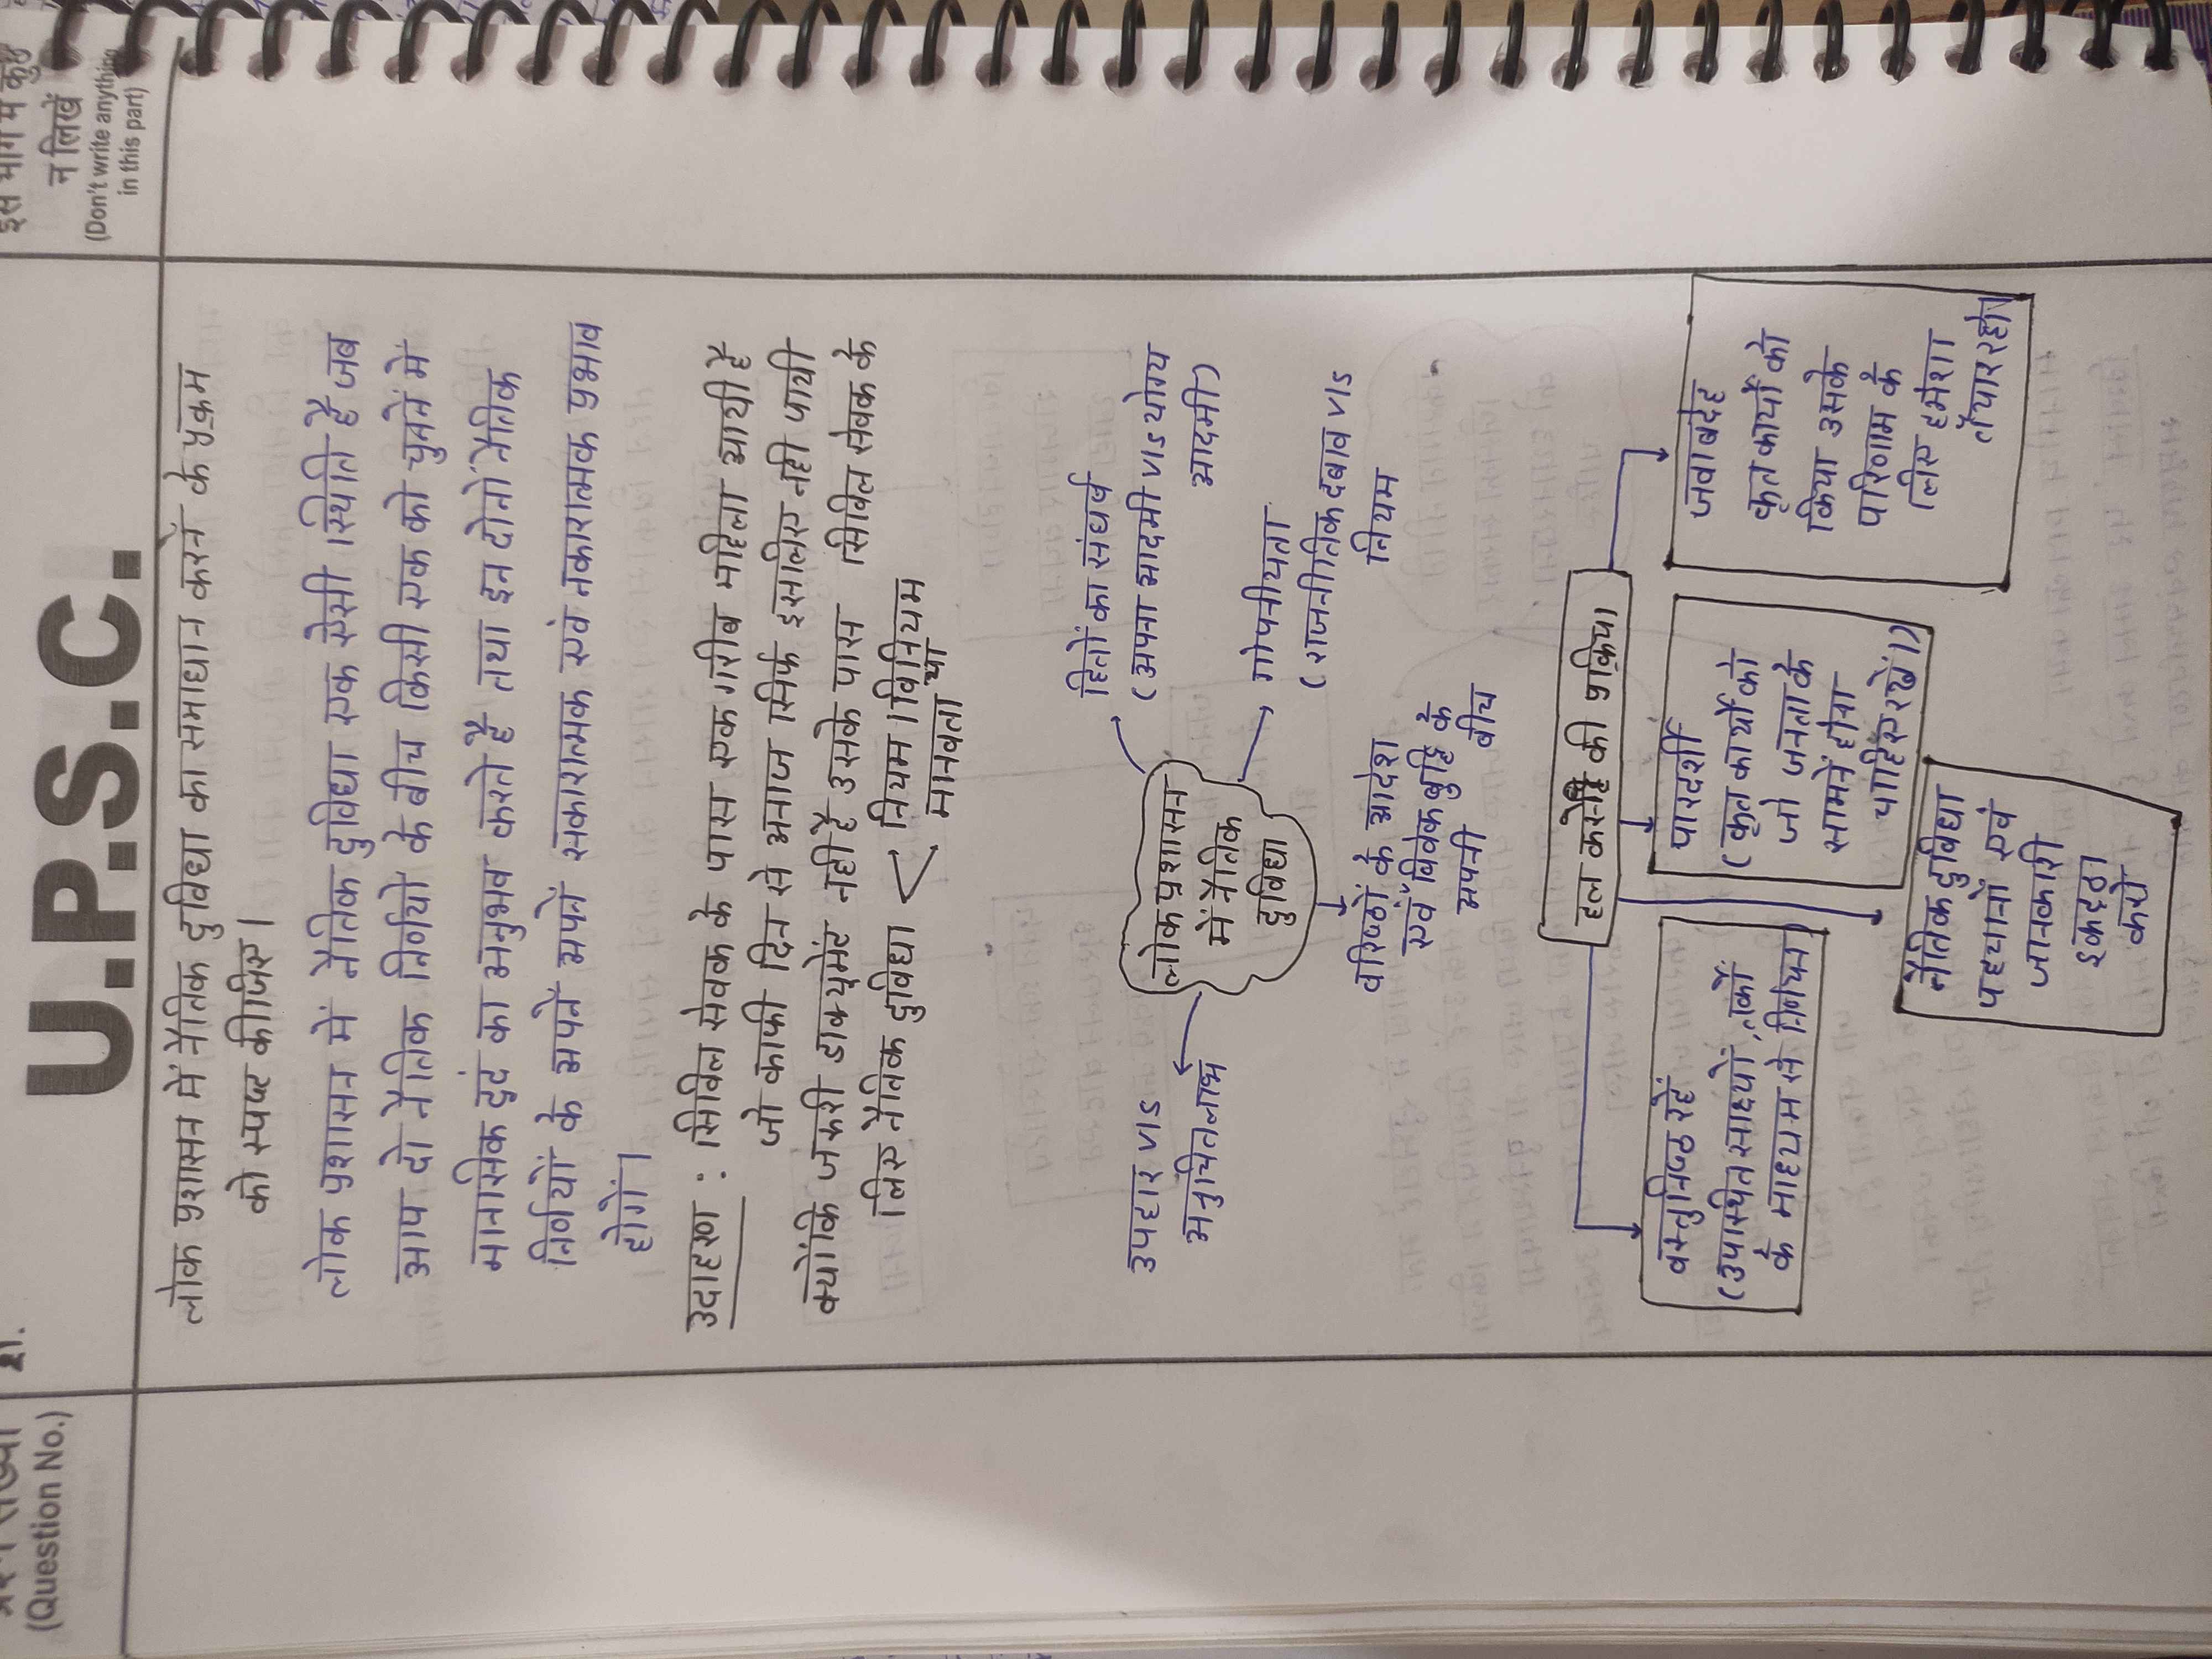 प्रश्न संख्या
(Question No.)
U.P.S.C.
इस भाग में कुछ
न लिखें
(Don't write anything
in this part)
लोक प्रशासन में नैतिक दुविधा का समाधान करने के प्रक्रम
को स्पष्ट कीजिए।
लोक प्रशासन में नैतिक दुविधा एक ऐसी स्थिति है जब
आप दो नैतिक निर्णयो के बीच किसी एक को चुननें में
मानसिक द्वंद का अनुभव करते है तथा इन दोनों नैतिक
निर्णयों के अपने अपनें सकारात्मक एवं नकारात्मक प्रभाव
होगें।
उदाहरण : सिविल सेवक के पास एक गरीब महिला आयी है
जो काफी दिन से अनाज सिर्फ इसलिए नही पायी
क्योंकि जरुरी डाक्यूमेंट नही है उसके पास सिविल सेवक के
लिए नैतिक दुविधा < नियम।विनियम
या
मानवता
हितों का संघर्ष
(अपना आदमी v/s योग्य
आदमी)
लोक प्रशासन
में नैतिक
दुविधा
गोपनीयता
(राजनीतिक दबाव v/s
नियम
उपहार v/s
अनुचित लाभ
वरिष्ठों के आदेश
एवं विवेक बुद्धि के
अपनी बीच
हल करने की प्रक्रिया
वस्तुनिष्ठ रहें
(उपास्थित साक्ष्यों, तर्को
के माध्यम से निर्णयन)
पारदर्शी
(कृत कार्यों को
जो जनता के
सामनें होना
चाहिए रखें।)
जवाबदेह
कृत कार्यों को
किया उसके
परिणाम के
लिए हमेशा
तैयार रहो।
नैतिक दुविधा
पहचानों एवं
जानकारी
इकट्ठा
करो